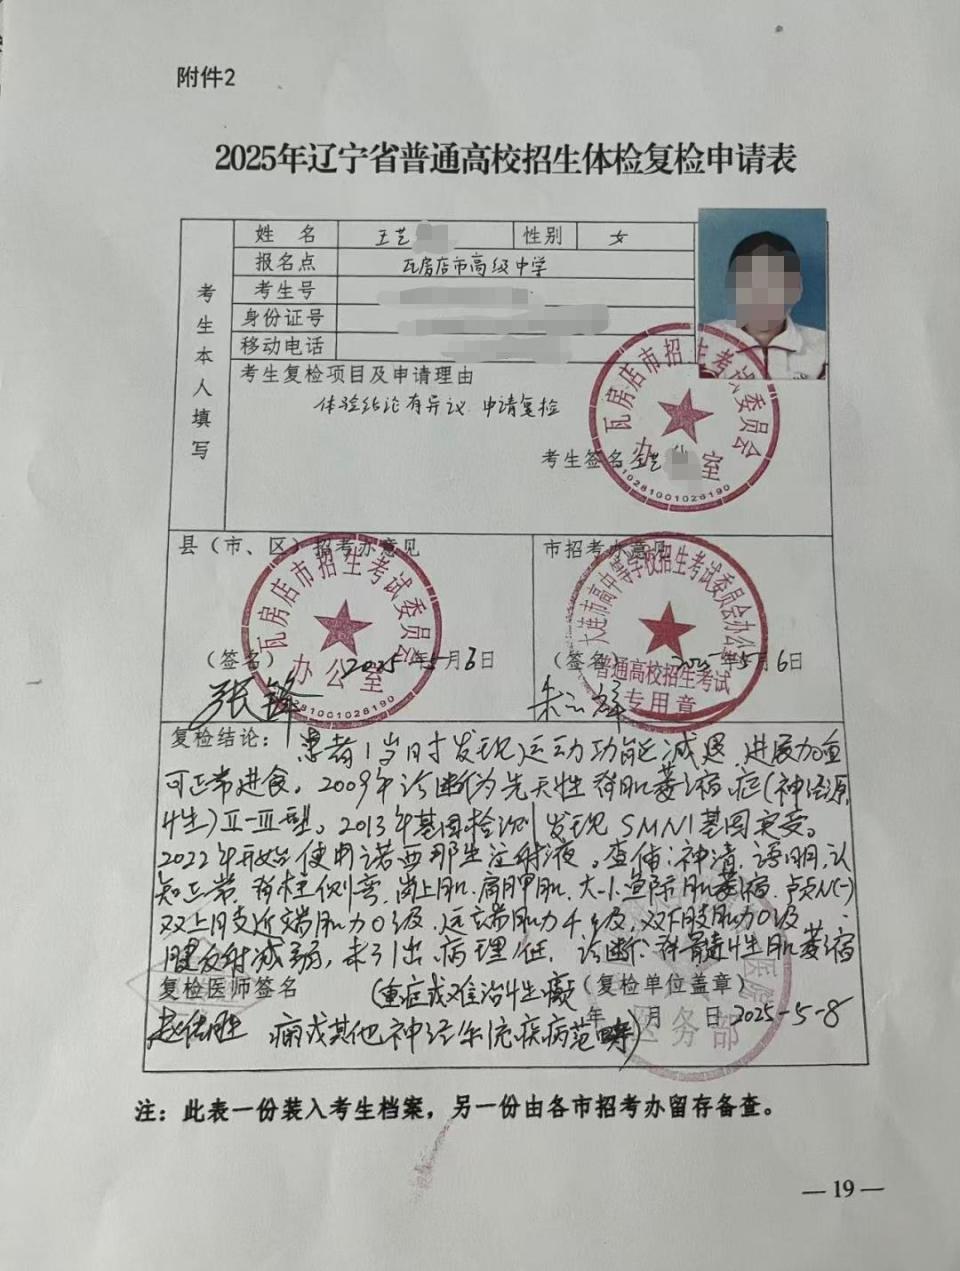 附件2
2025年辽宁省普通高校招生体检复检申请表
考生本人填写
姓 名 王艺 性别 女
报名点 瓦房店市高级中学
考生号
身份证号
移动电话
考生复检项目及申请理由
体检结论有异议 申请复检
考生签名 王艺
瓦房店市招生考试委员会
办公室
210281001028190
县（市、区）招考办意见
瓦房店市招生考试委员会
办公室
210281001028190
（签名） 2025年5月6日
张锋
市招考办意见
大连市高中等学校招生考试委员会办公室
普通高校招生考试
专用章
（签名） 2025年5月6日
复检结论： 患者1岁时发现运动功能减退，进展加重
可正常进食。2009年诊断为先天性脊肌萎缩症(神经源
性)II-III型。2013年基因检测发现SMN1基因突变。
2022年开始使用诺西那生注射液。查体:神清，语明，认
知正常，脊柱侧弯，岗上肌、肩胛肌、大小鱼际肌萎缩，颅N(-)
双上肢近端肌力0级，远端肌力4级，双下肢肌力0级
腱反射减弱，未引出病理征。诊断:脊髓性肌萎缩
复检医师签名 (重症或难治性癫 （复检单位盖章）
痫或其他神经系统疾病范畴) 年 月 日 2025-5-8
医院
医务部
注：此表一份装入考生档案，另一份由各市招考办留存备查。
— 19 —